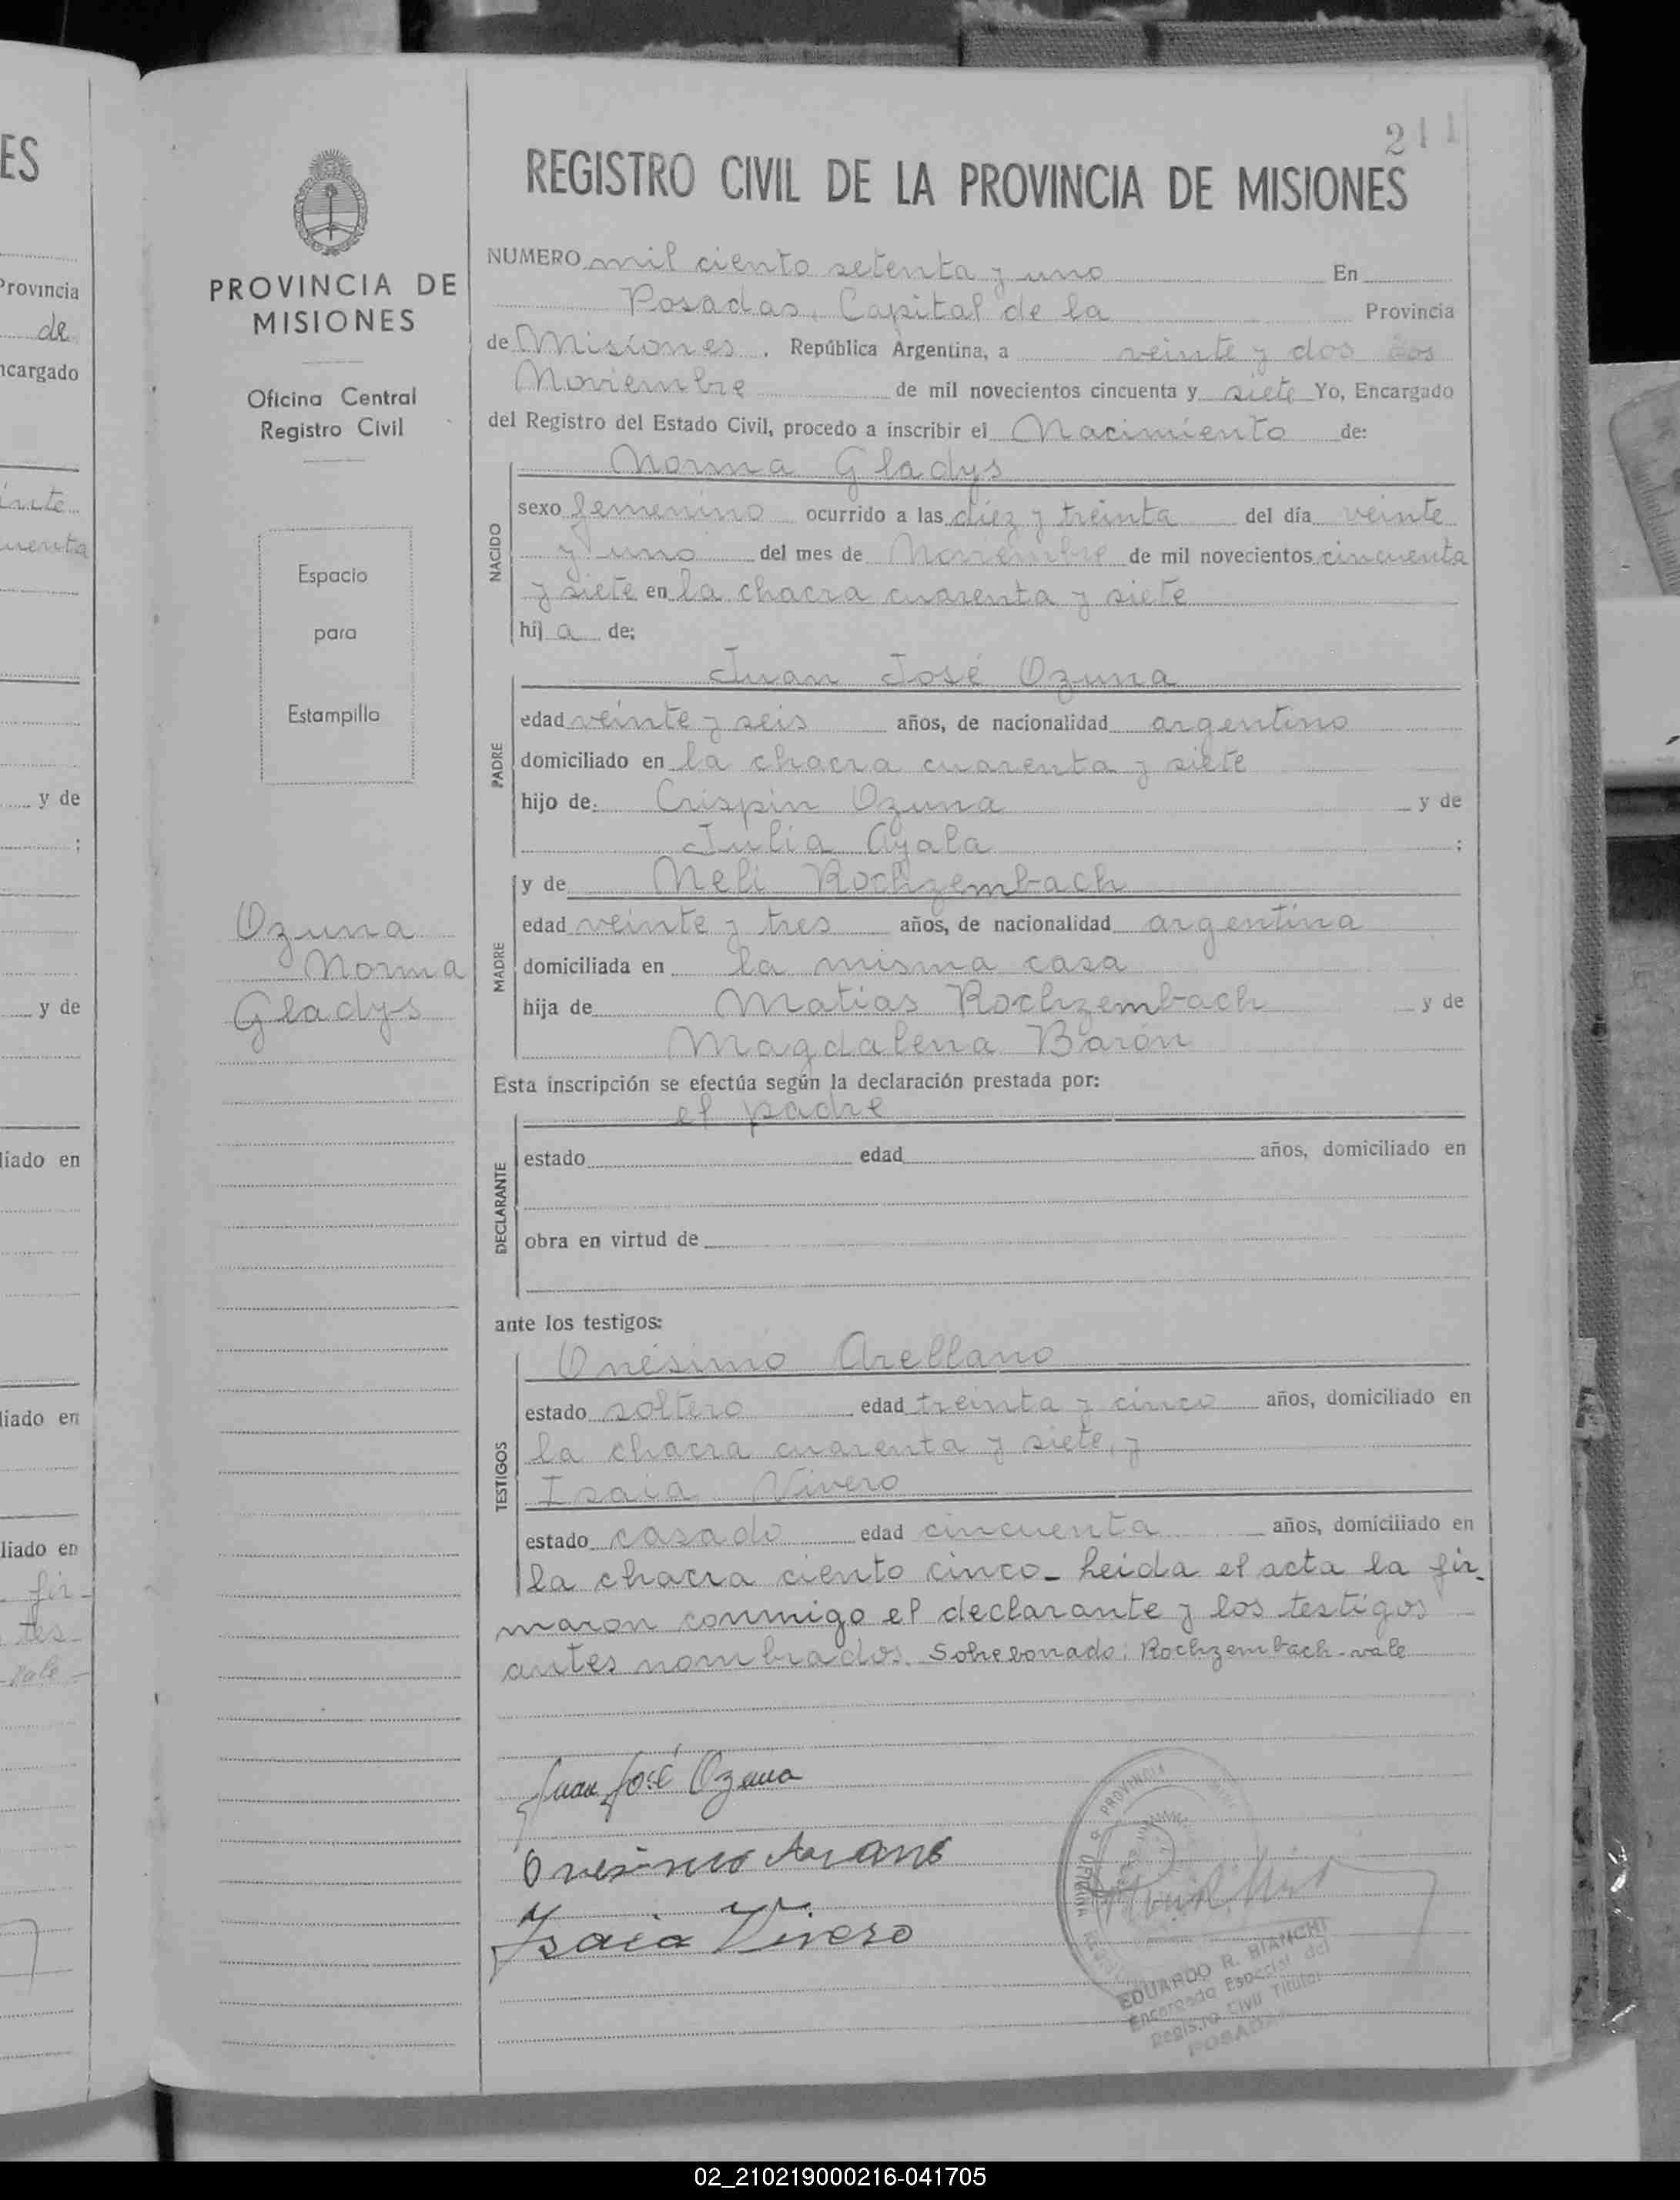 211
REGISTRO CIVIL DE LA PROVINCIA DE MISIONES
PROVINCIA DE
MISIONES
Oficina Central
Registro Civil
Espacio
para
Estampilla
Ozuna
Norma
Gladys
NUMERO mil ciento setenta y uno En
Posadas, Capital de la Provincia
de Misiones, República Argentina, a veinte y dos
Noviembre de mil novecientos cincuenta y siete Yo, Encargado
del Registro del Estado Civil, procedo a inscribir el Nacimiento de:
Norma Gladys
NACIDO
sexo femenino ocurrido a las diez y treinta del día veinte
y uno del mes de Noviembre de mil novecientos cincuenta
y siete en la chacra cuarenta y siete
hija de:
Juan José Ozuna
PADRE
edad veinte y seis años, de nacionalidad argentino
domiciliado en la chacra cuarenta y siete
hijo de: Crispín Ozuna y de
Julia Ayala ;
y de Neli Rochzembach
MADRE
edad veinte y tres años, de nacionalidad argentina
domiciliada en la misma casa
hija de Matias Rochzembach y de
Magdalena Barón
Esta inscripción se efectúa según la declaración prestada por:
el padre
DECLARANTE
estado edad años, domiciliado en
obra en virtud de
ante los testigos:
Onésimo Arellano
TESTIGOS
estado soltero edad treinta y cinco años, domiciliado en
la chacra cuarenta y siete, y
Isaia Vivero
estado casado edad cincuenta años, domiciliado en
la chacra ciento cinco_ Leida el acta la fir-
maron conmigo el declarante y los testigos
antes nombrados. Sobreborrado: Rochzembach-vale
Juan José Ozuna
Isaia Vivero
PROVINCIA
EDUARDO R. BIANCHI
Encargado Especial del
Registro Civil Titular
POSADAS
ES
Provincia
de
ncargado
y de
;
y de
liado en
liado en
liado en
fir-
tes
vale
02_210219000216-041705